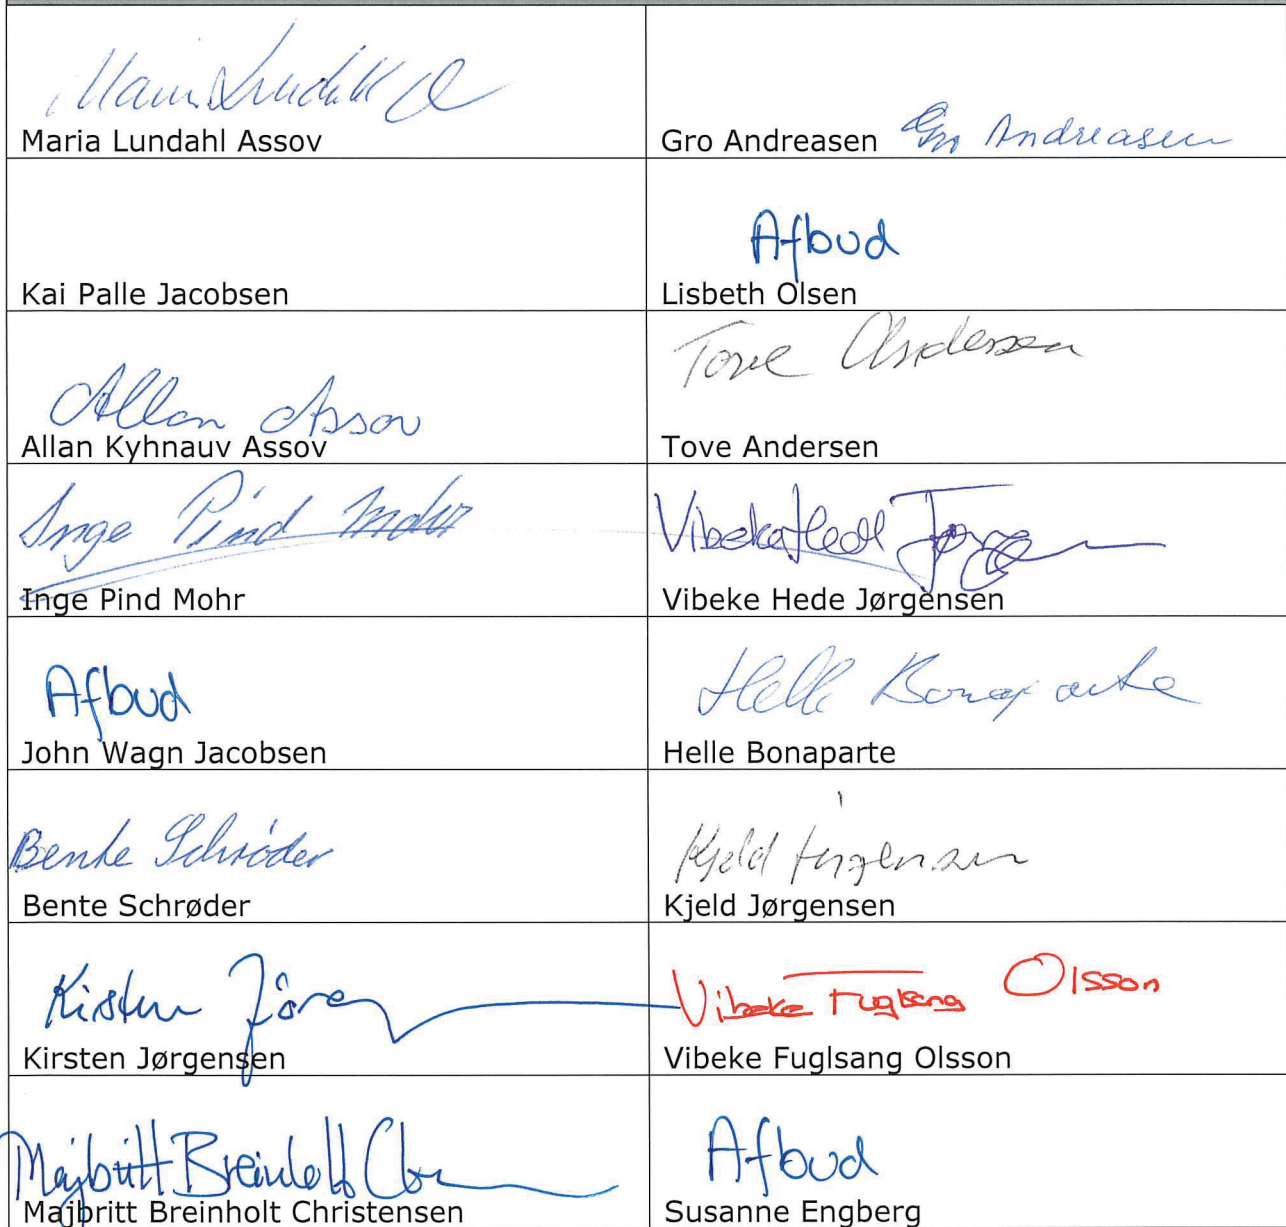 Maria Lundahl
Maria Lundahl Assov
Gro Andreasen Gro Andreasen
Kai Palle Jacobsen
Afbud
Lisbeth Olsen
Allan Assov
Allan Kyhnauv Assov
Tove Andersen
Tove Andersen
Inge Pind Mohr
Inge Pind Mohr
Vibeke Hede Jørgensen
Afbud
John Wagn Jacobsen
Helle Bonaparte
Helle Bonaparte
Bente Schrøder
Bente Schrøder
Kjeld Jørgensen
Kjeld Jørgensen
Kirsten
Kirsten Jørgensen
Vibeke Fuglsang Olsson
Vibeke Fuglsang Olsson
Majbritt Breinholt
Majbritt Breinholt Christensen
Afbud
Susanne Engberg